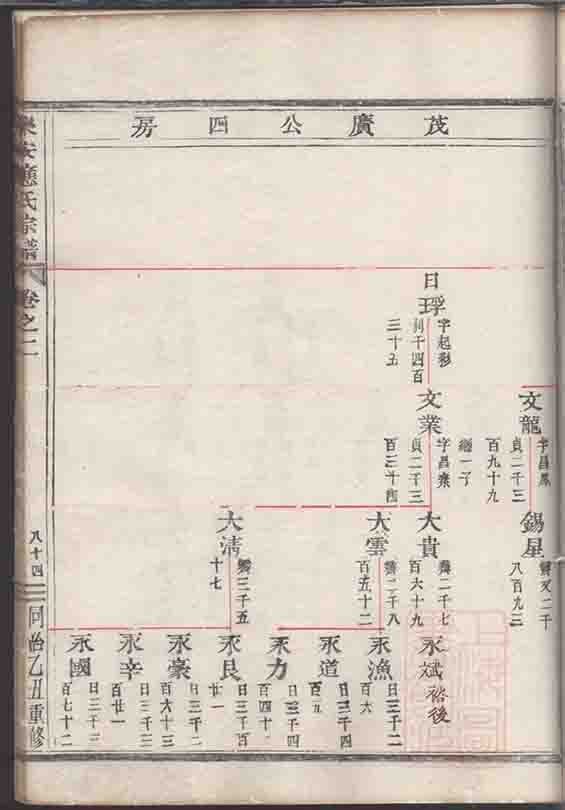 茂廣公四房
日琈
字起彩
利千四百
三十五
文龍
字昌鳳
貞二千三
百九十九
繼一子
文業
字昌業
貞二千三
百三十四
錫星
八百九三
大貴
龔二千七
百六十九
大雲
龔二千八
百五十二
大清
龔三千五
十七
永斌 裕後
永漁
日三千二
百六
永道
日三千四
百五
永力
日三千四
百四十
永良
日三千百
廿一
永豪
日三千二
百六十三
永辛
日三千三
百廿一
永國
日三千三
百七十二
樂安應氏宗譜 卷之二
八十四
同治乙丑重修